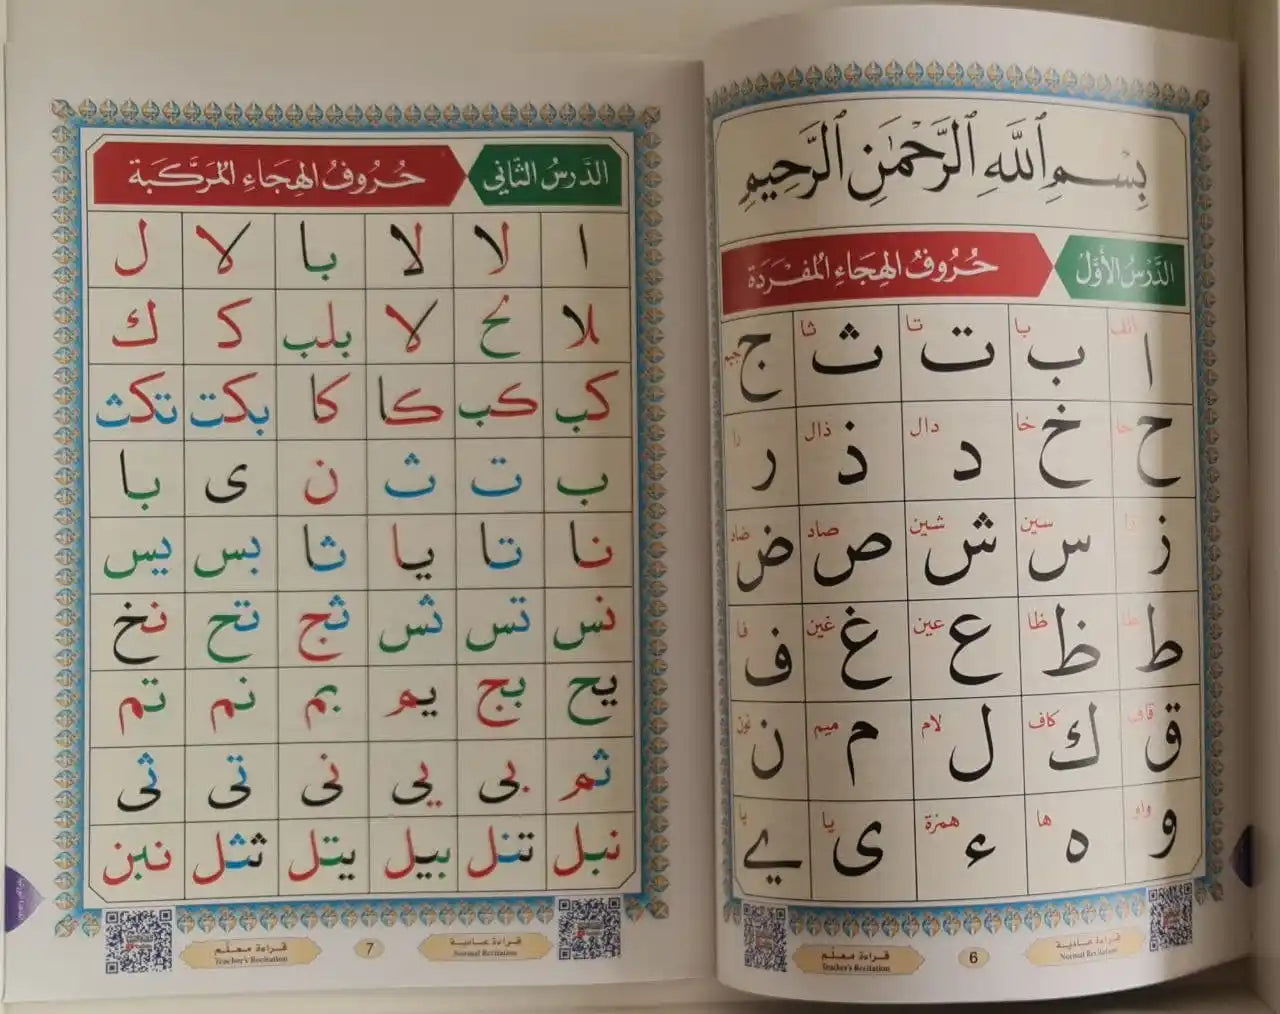 بِسْمِ ٱللَّهِ ٱلرَّحْمَٰنِ ٱلرَّحِيمِ
الدَّرْسُ الأَوَّلُ حُرُوفُ الهِجَاءِ المُفْرَدَة
ألف با تا ثا جيم
ا ب ت ث ج
حا خا دال ذال را
ح خ د ذ ر
زا سين شين صاد ضاد
ز س ش ص ض
طا ظا عين غين فا
ط ظ ع غ ف
قاف كاف لام ميم نون
ق ك ل م ن
واو ها همزة يا يا
و ه ء ى ے
قراءة عادية 6 قراءة معلّم
Normal Recitation Teacher's Recitation
الدَّرْسُ الثَّانِي حُرُوفُ الهِجَاءِ المُرَكَّبَة
ا لا لا با لا ل
لا ح لا بلب ک ك
كب كب كا كا بكت تكث
ب ت ث ن ى با
نا تا يا ثا بس يس
نس تس ثس ثج تح نخ
يح بج يم بم نم تم
ثم بى يى نى تى ثى
نبل تنل بيل يتل ثثل نبن
قراءة عادية 7 قراءة معلّم
Normal Recitation Teacher's Recitation